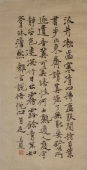 汲井漱寒齒清心拂塵服閒持貝葉
書步出東齋讀真源了無取妄
跡世所逐遺言冀可冥繕性何由熟道人庭
宇靜苔色連深竹日出霧露餘青松如
膏沐澹然離言說悟悅心自足